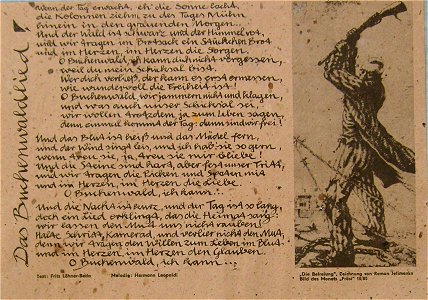 Das Buchenwaldlied!
Wenn der Tag erwacht, eh' die Sonne lacht,
die Kolonnen ziehn zu des Tages Mühn
hinein in den grauenden Morgen.
Und der Wald ist schwarz und der Himmel rot,
und wir tragen im Brotsack ein Stückchen Brot
und im Herzen, im Herzen die Sorgen.
O Buchenwald, ich kann dich nicht vergessen,
weil du mein Schicksal bist.
Wer dich verließ, der kann es erst ermessen,
wie wundervoll die Freiheit ist!
O Buchenwald, wir jammern nicht und klagen,
und was auch unser Schicksal sei,
wir wollen trotzdem ja zum Leben sagen,
denn einmal kommt der Tag: dann sind wir frei!
Und das Blut ist heiß und das Mädel fern,
und der Wind singt leis, und ich hab' sie so gern,
wenn treu sie, ja, treu sie mir bliebe!
Und die Steine sind hart, aber fest unser Tritt,
und wir tragen die Picken und Spaten mit
und im Herzen, im Herzen die Liebe.
O Buchenwald, ich kann...
Und die Nacht ist kurz, und der Tag ist so lang,
doch ein Lied erklingt, das die Heimat sang:
wir lassen den Mut uns nicht rauben!
Halte Schritt, Kamerad, und verlier nicht den Mut,
denn wir tragen den Willen zum Leben im Blut
und im Herzen, im Herzen den Glauben.
O Buchenwald, ich kann...
Text: Fritz Löhner-Beda Melodie: Hermann Leopoldi
„Die Befreiung", Zeichnung von Roman Jefimenko
Bild des Monats „Frösi" 10/85